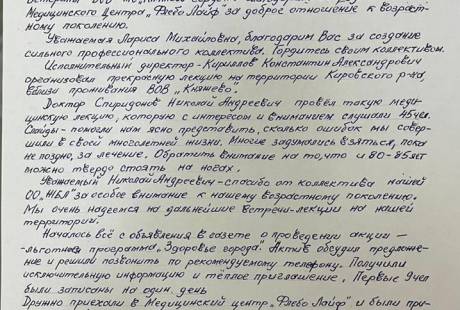 Медицинского Центра „Флебо Лайф" за доброе отношение к возраст-
ному поколению.
Уважаемая Лариса Михайловна, благодарим Вас за создание
сильного профессионального коллектива. Гордитесь своим коллективом.
Исполнительный директор - Кириллов Константин Александрович
организовал прекрасную лекцию на территории Кировского р-на,
вблизи проживания ВОВ „Княжево".
Доктор Спиридонов Николай Андреевич провёл такую меди-
цинскую лекцию, которую с интересом и вниманием слушали 45 чел.
Слайды - помогли нам ясно представить, сколько ошибок мы совер-
шили в своей многолетней жизни. Многие задумались взяться, пока
не поздно, за лечение. Обратить внимание на то, что и 80-85 лет
можно твердо стоять на ногах.
Уважаемый Николай Андреевич - спасибо от коллектива нашей
ОО „ЖБЛ" за особое внимание к нашему возрастному поколению.
Мы очень надеемся на дальнейшие встречи-лекции на нашей
территории.
Началось всё с объявления в газете о проведении акции —
- льготная программа „Здоровье города". Актив обсудил предложе-
ние и решили позвонить по рекомендуемому телефону. Получили
исключительную информацию и тёплое приглашение. Первые 9 чел
были записаны на один день
Дружно приехали в Медицинский центр „Флебо Лайф" и были при-